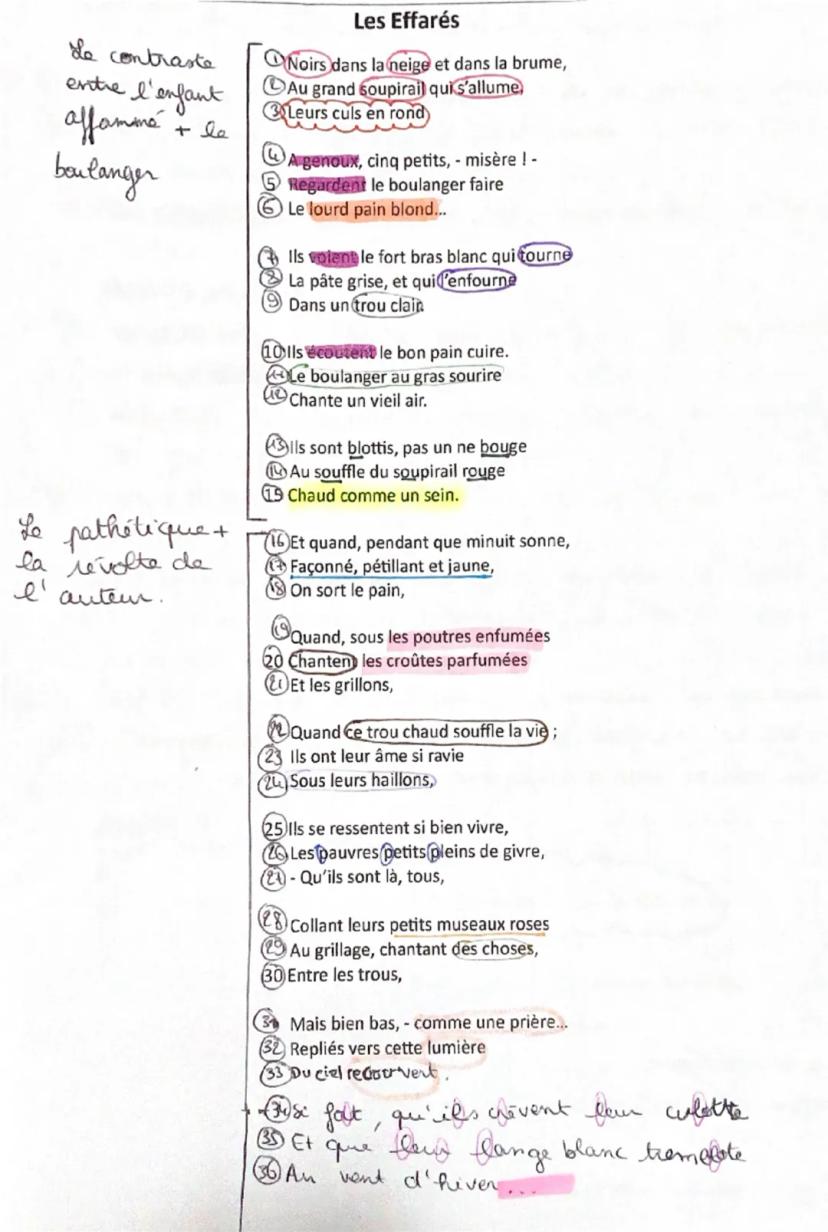 Les Effarés
Le contraste
entre l'enfant
affammé + le
boulanger
① Noirs dans la neige et dans la brume,
② Au grand soupirail qui s'allume,
③ Leurs culs en rond
④ A genoux, cinq petits, - misère ! -
⑤ Regardent le boulanger faire
⑥ Le lourd pain blond...
⑦ Ils voient le fort bras blanc qui tourne
⑧ La pâte grise, et qui l'enfourne
⑨ Dans un trou clair.
⑩ Ils écoutent le bon pain cuire.
⑪ Le boulanger au gras sourire
⑫ Chante un vieil air.
⑬ Ils sont blottis, pas un ne bouge
⑭ Au souffle du soupirail rouge
⑮ Chaud comme un sein.
Le pathétique +
la révolte de
l'auteur.
⑯ Et quand, pendant que minuit sonne,
⑰ Façonné, pétillant et jaune,
⑱ On sort le pain,
⑲ Quand, sous les poutres enfumées
⑳ Chantent les croûtes parfumées
㉑ Et les grillons,
㉒ Quand ce trou chaud souffle la vie ;
㉓ Ils ont leur âme si ravie
㉔ Sous leurs haillons,
㉕ Ils se ressentent si bien vivre,
㉖ Les pauvres petits pleins de givre,
㉗ - Qu'ils sont là, tous,
㉘ Collant leurs petits museaux roses
㉙ Au grillage, chantant des choses,
㉚ Entre les trous,
㉛ Mais bien bas, - comme une prière...
㉜ Repliés vers cette lumière
㉝ Du ciel recouvert.
㉞ Si fort, qu'ils crèvent leur culotte
㉟ Et que leur lange blanc tremblote
㊱ Au vent d'hiver...